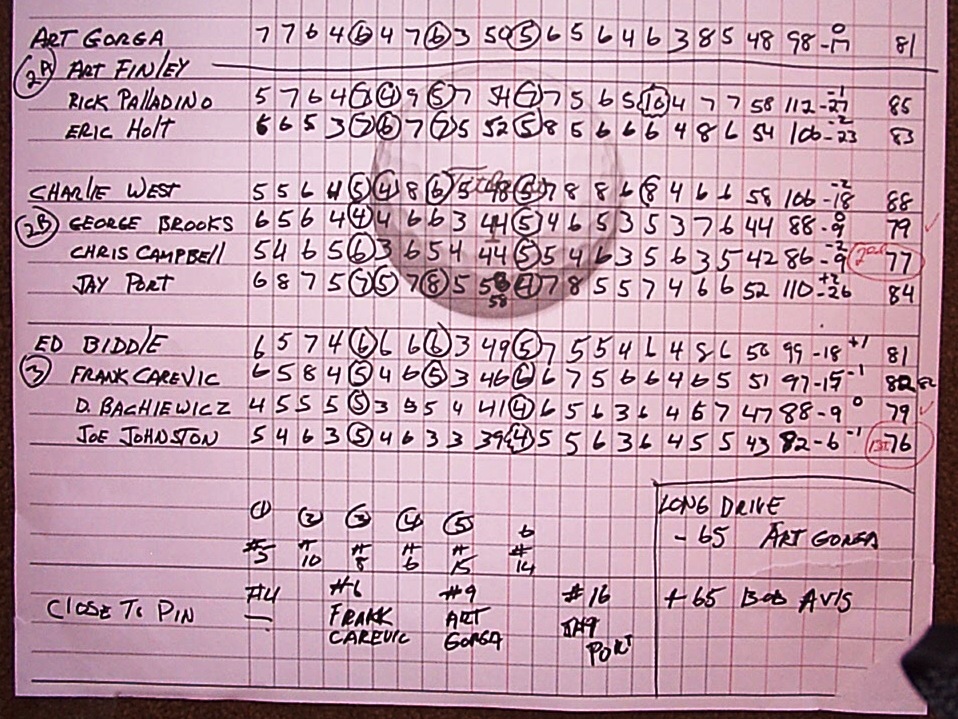 ART GORGA 7 7 6 4 6 4 7 6 3 50 5 6 5 6 4 6 3 8 5 48 98 -17 0 81
2A ART FINLEY
RICK PALLADINO 5 7 6 4 9 5 7 54 7 7 5 6 5 10 4 7 7 58 112 -27 -2 85
ERIC HOLT 6 6 5 3 7 6 7 7 5 52 5 8 5 6 6 6 4 8 6 54 106 -23 -2 83
Titleist
CHARLIE WEST 5 5 6 4 5 4 8 6 5 48 5 7 8 8 6 8 4 6 6 58 106 -18 -2 88
2B GEORGE BROOKS 6 5 6 4 4 4 6 6 3 44 5 4 6 5 3 5 3 7 6 44 88 -9 0 79 ✓
CHRIS CAMPBELL 5 4 6 5 6 3 6 5 4 44 5 5 4 6 3 5 6 3 5 42 86 -9 -2 2nd 77
JAY PORT 6 8 7 5 7 5 7 8 5 58 4 7 8 5 5 7 4 6 6 52 110 -26 +2 84
58
ED BIDDLE 6 5 7 4 6 6 6 6 3 49 5 7 5 5 4 6 4 8 6 50 99 -18 +1 81
3 FRANK CAREVIC 6 5 8 4 5 4 6 5 3 46 6 6 7 5 6 6 4 6 5 51 97 -15 -1 82 82
D. BACHIEWICZ 4 5 5 5 5 3 5 5 4 41 4 6 5 6 3 6 4 6 7 47 88 -9 0 79 ✓
JOE JOHNSTON 5 4 6 3 5 4 6 3 3 39 4 5 5 6 3 6 4 5 5 43 82 -6 -1 1st 76
1 2 3 4 5 6
#5 #10 #8 #6 #15 #14
LONG DRIVE
-65 ART GORGA
+65 BOB AVIS
#4 #6 #9 #16
CLOSE TO PIN — FRANK CAREVIC ART GORGA JAY PORT